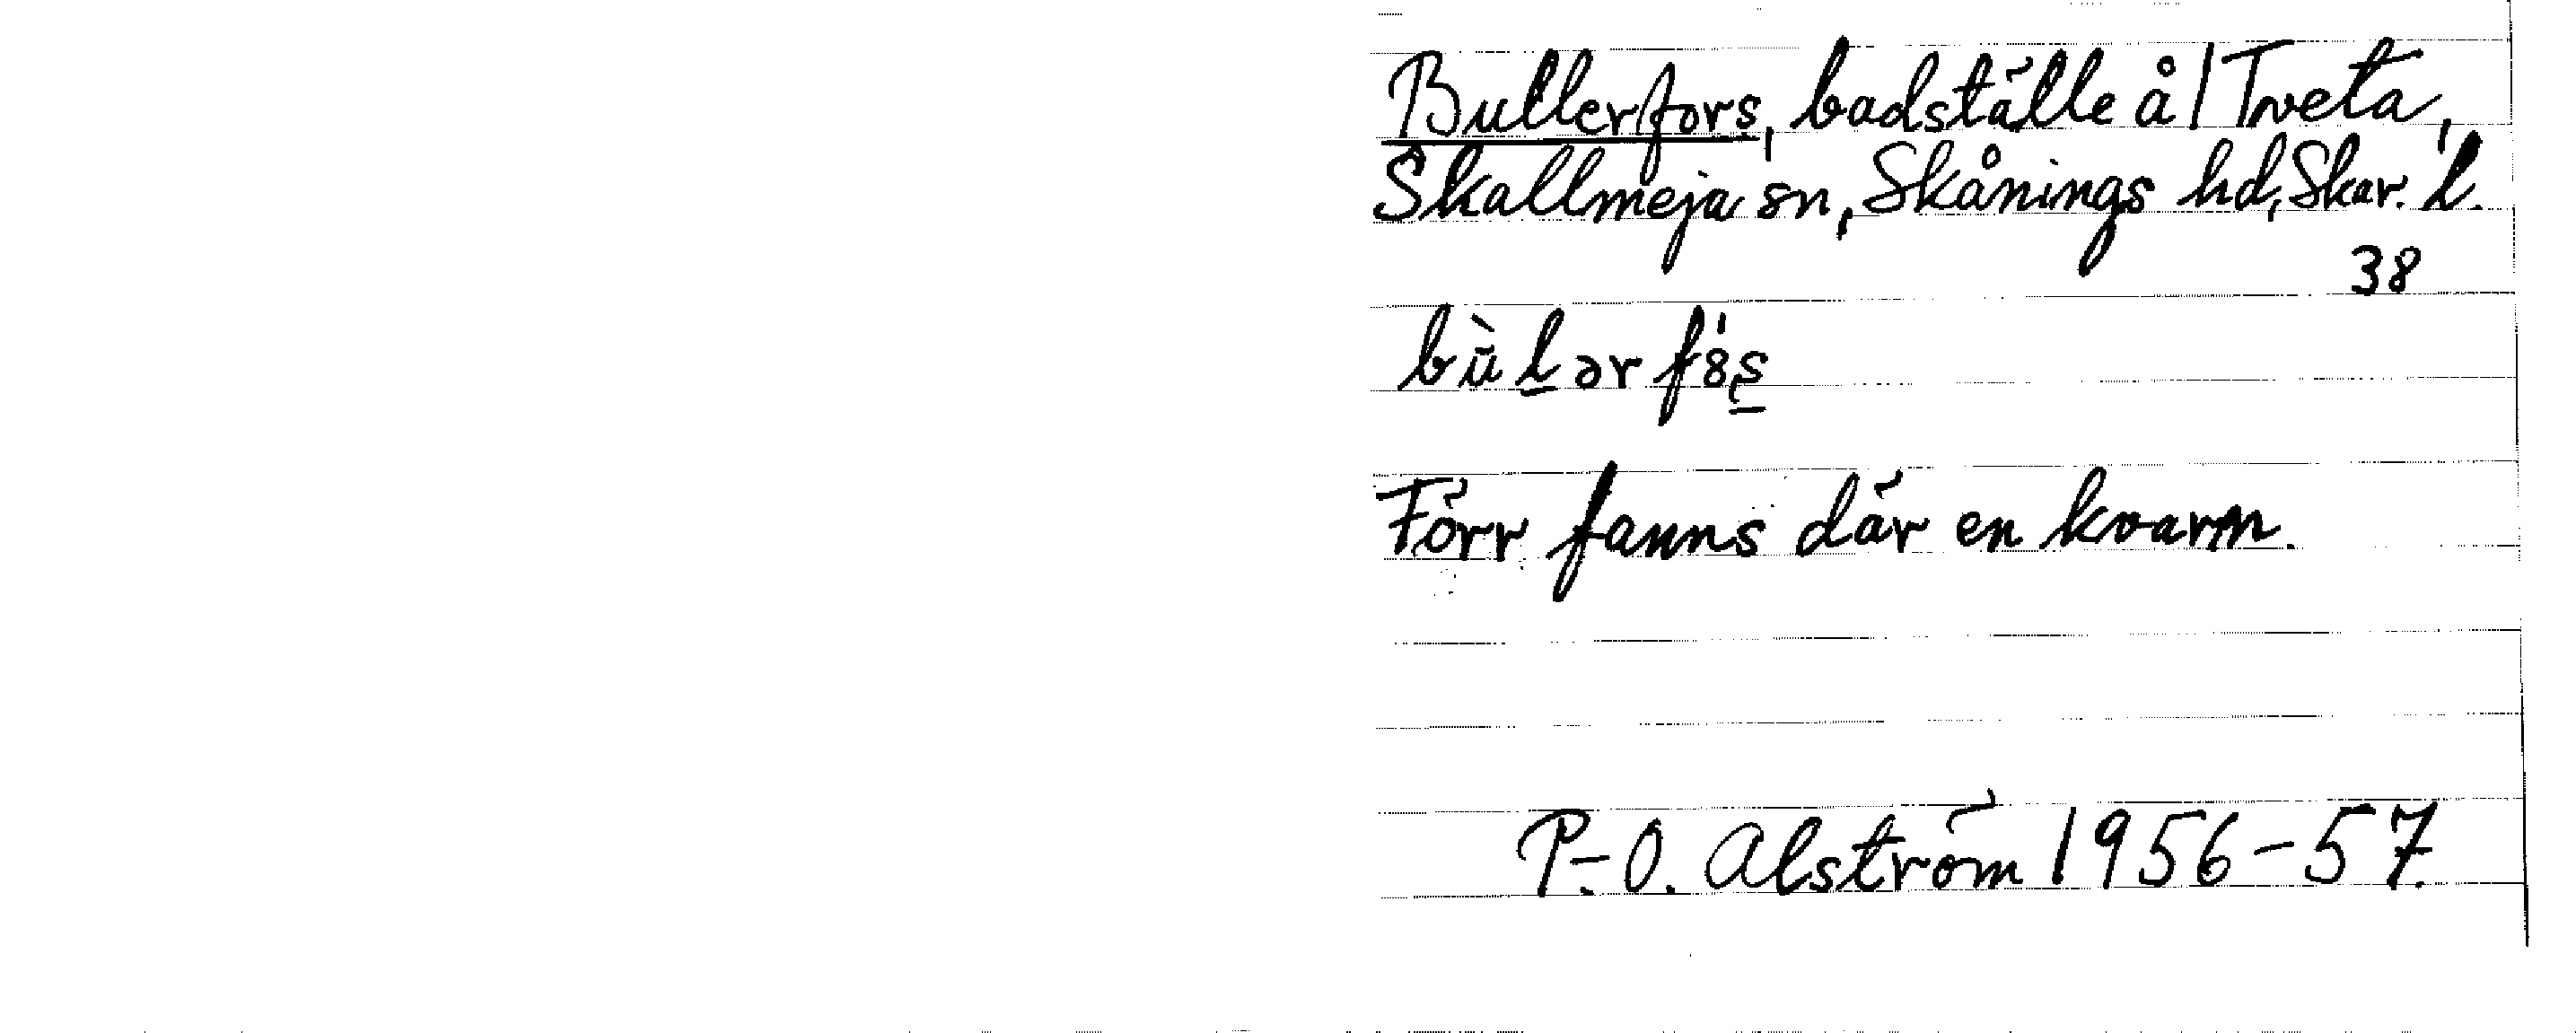 Bullerfors, badställe å/Tveta,
Skallmeja sn, Skånings hd, Skar. l.
38
bùlərfs
Förr fanns där en kvarn.
P.-O. Alström 1956-57.